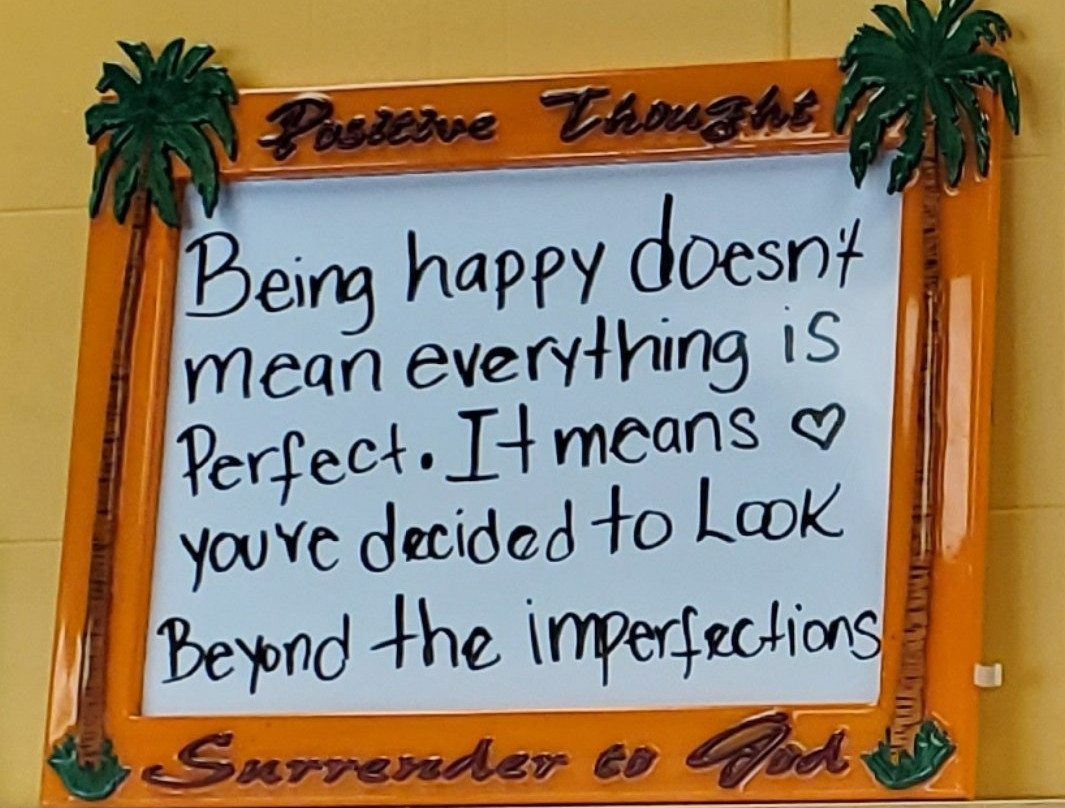 Positive Thought
Being happy doesn't
mean everything is
Perfect. It means ♡
you're decided to Look
Beyond the imperfections
Surrender to God